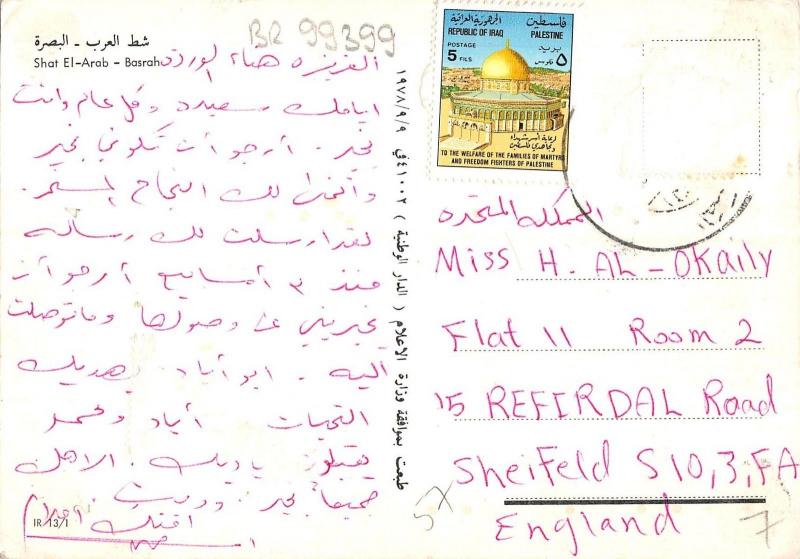 شط العرب - البصرة
Shat El-Arab - Basrah
BR 99399
العزيزه هناء الورد
ايامك سعيده وكل عام وانت
بخير. أرجو أن تكوني بخير
وأتمنى لك النجاح المستمر.
لقد ارسلت لك رساله
منذ ٣ أسابيع أرجو أن
تخبريني عن وصولها وما توصلت
اليه. ابو أياد يهديك
التحيات أياد ومحمد
يقبلون ياديك. الاهل
جميعاً بخير.
IR 13/1
طبعت بموافقة وزارة الاعلام ( الدار الوطنية ) ٤١٠٠٢ في ١٩٧٨/٩/٩
الجمهورية العراقية فلسطين
REPUBLIC OF IRAQ PALESTINE
POSTAGE بريد
5 FILS ٥ فلوس
لرعاية أسر شهداء
ومجاهدي فلسطين
TO THE WELFARE OF THE FAMILIES OF MARTYRS
AND FREEDOM FIGHTERS OF PALESTINE
المملكه المتحده
Miss H. AL-OKaily
Flat 11 Room 2
15 REFIRDAL Road
Sheifeld S10,3,FA
England
57
7